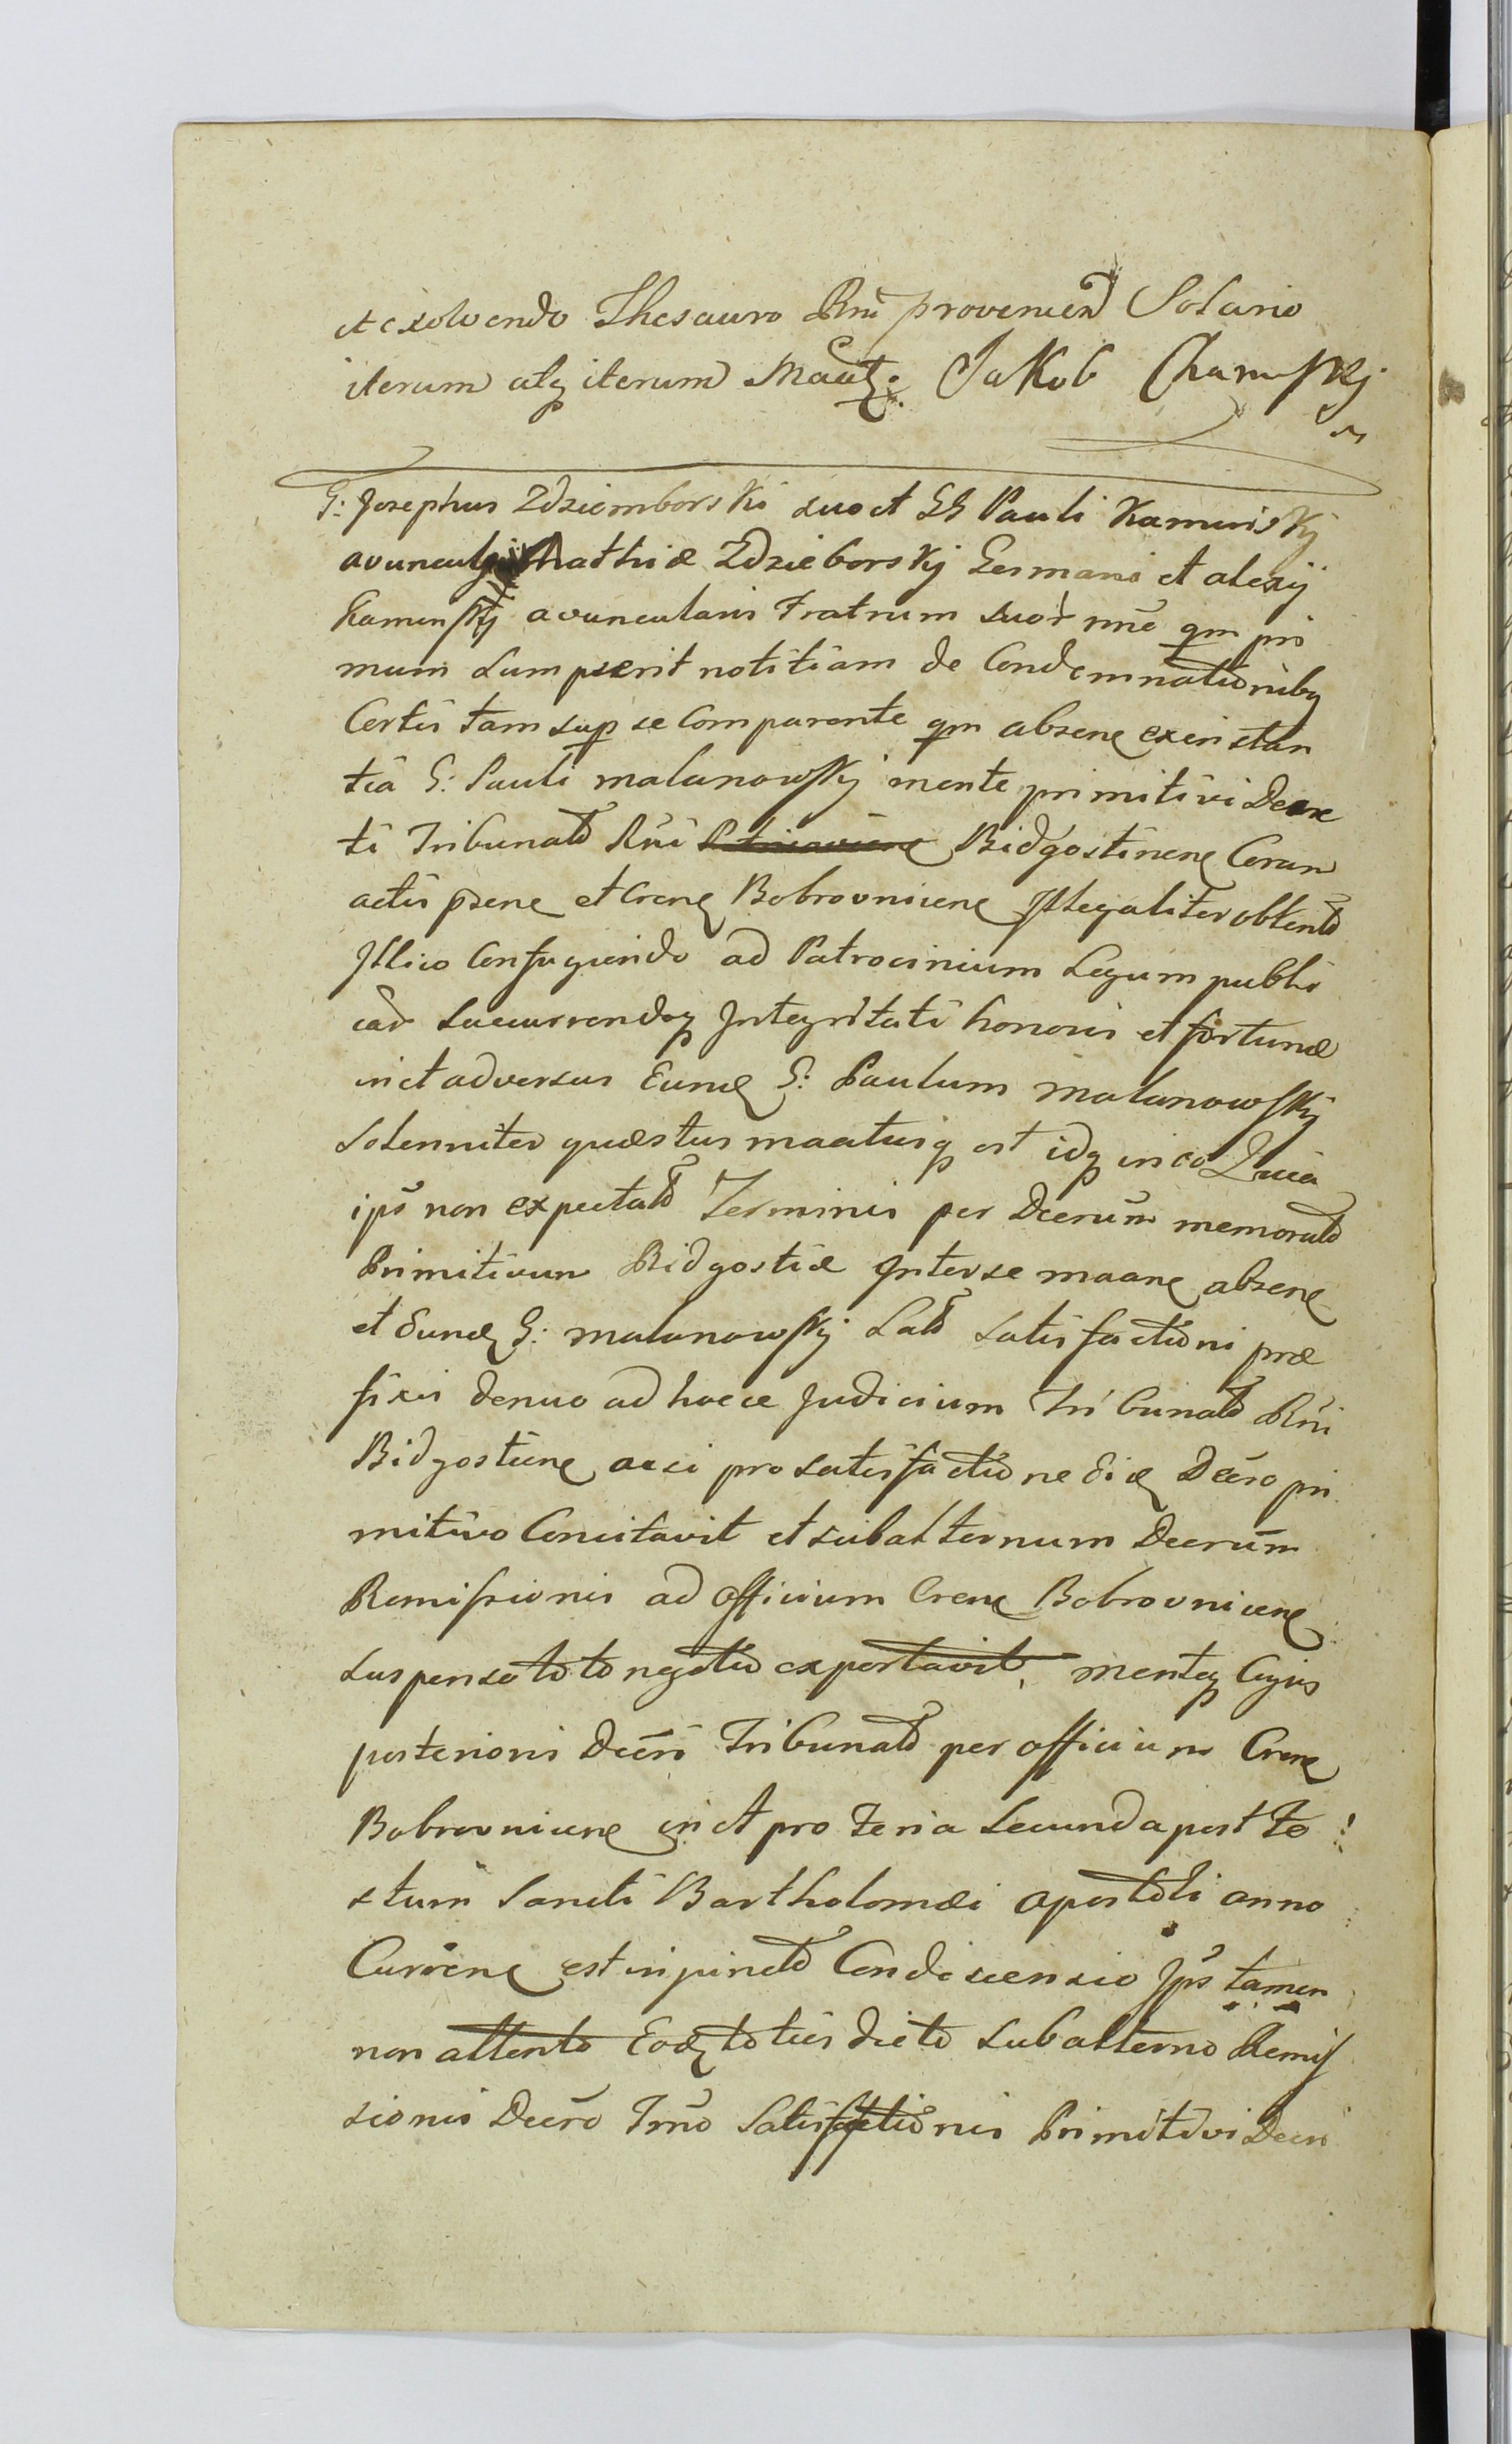 et exolvendo Thesauro Rni provenien Solario
iterum atq iterum Maatq. Jakob
G: Josephus Zdziemborski suo et GG Pauli Kaminskij
avunculi Mathiæ Zdzieborskij Germani et alexij
Kaminskij avuncularis Fratrum suor nne qm pri
mum sumpserit notitiam de Condemnationibq
Certis tam sup se Comparente qm absene ex instan
tia G: Pauli malanowskij mente primitivi Decre
ti Tribunald Rni Bidgostinene Coram
actis psene et Crene Bobrovnicene Illegaliter obtentd
Illico Confugiendo ad Patrocinium Legum publi
car Succurrendoq Integritati honoris et fortunæ
in et adversus Eunde G: Paulum malanowskij
Solenniter quæstus maatusq est idq in eo Quia
ips non expectatd Terminis per Decrum memoratd
Primitivum Bidgostiæ Inter se maane absene
et Eunde G: malanowskij Latd satisfactioni præ
fixis denuo ad hocce Judicium Tribunald Rni
Bidgostiene acsi pro satisfactione Decro pri
mitivo Concitavit et subalternum Decrum
Remissionis ad officium Crene Bobrovnicene
suspenso toto negotio exportavit, menteq Cujus
posterioris Decri Tribunald per officium Crene
Bobrovnicene in et pro Feria Secunda post Fe
stum Sancti Bartholomæi apostoli anno
Currene est inpinctd Condescensio Ips tamen
non attento Eodq toties dicto subalterno Remis
sionis Decro Imo Satisfactionis Primitivi Decri